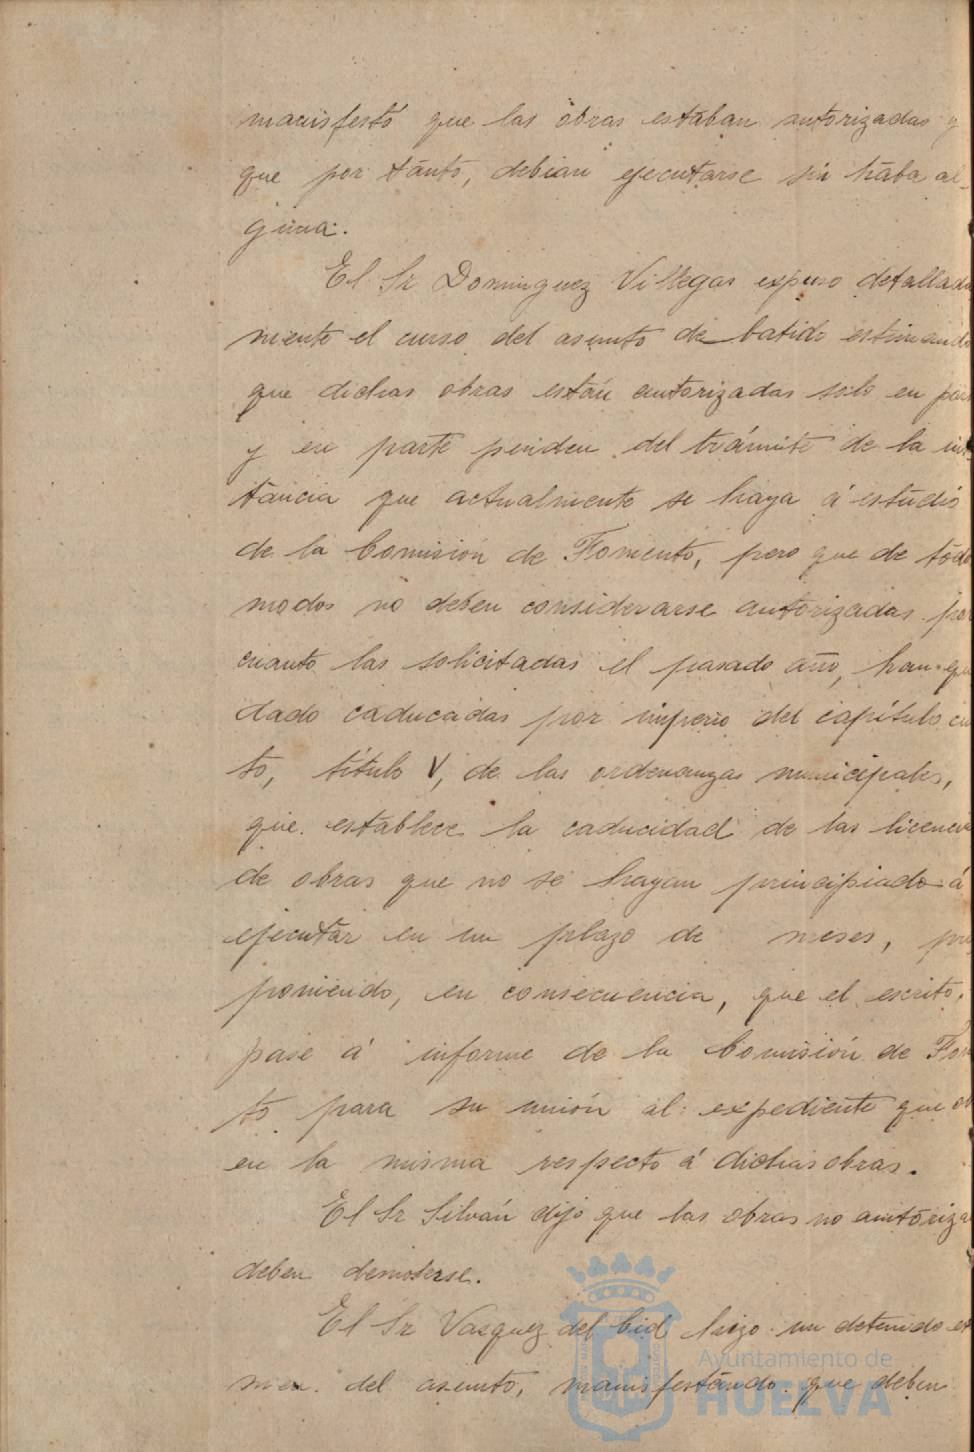 manifestó que las obras estaban autorizadas y
que por tanto, debian ejecutarse sin traba al-
guna.
El Sr Dominguez Villegas expuso detallada
mente el curso del asunto de batido estimando
que dichas obras están autorizadas solo en par
y en parte penden del trámite de la ins
tancia que actualmente se haya á estudio
de la Comisión de Fomento, pero que de todo
modos no deben considerarse autorizadas por
cuanto las solicitadas el pasado año, han que
dado caducadas por imperio del capítulo cu
to, título V, de las ordenanzas municipales,
que establece la caducidad de las licencia
de obras que no se hayan principiado á
ejecutar en un plazo de meses, pro
poniendo, en consecuencia, que el escrito,
pase á informe de la Comisión de Fom
to para su unión al expediente que ob
en la misma respecto á dichas obras.
El Sr Silván dijo que las obras no autoriza
deben demolerse.
El Sr Vazquez del Cid hizo un detenido ex
men del asunto, manifestando que deben
Ayuntamiento de
HUELVA